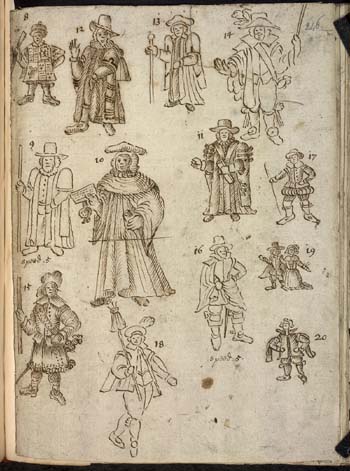 8
12
13
14
9
10
11
17
speed. 5
15
16
19
speed. 5
18
20